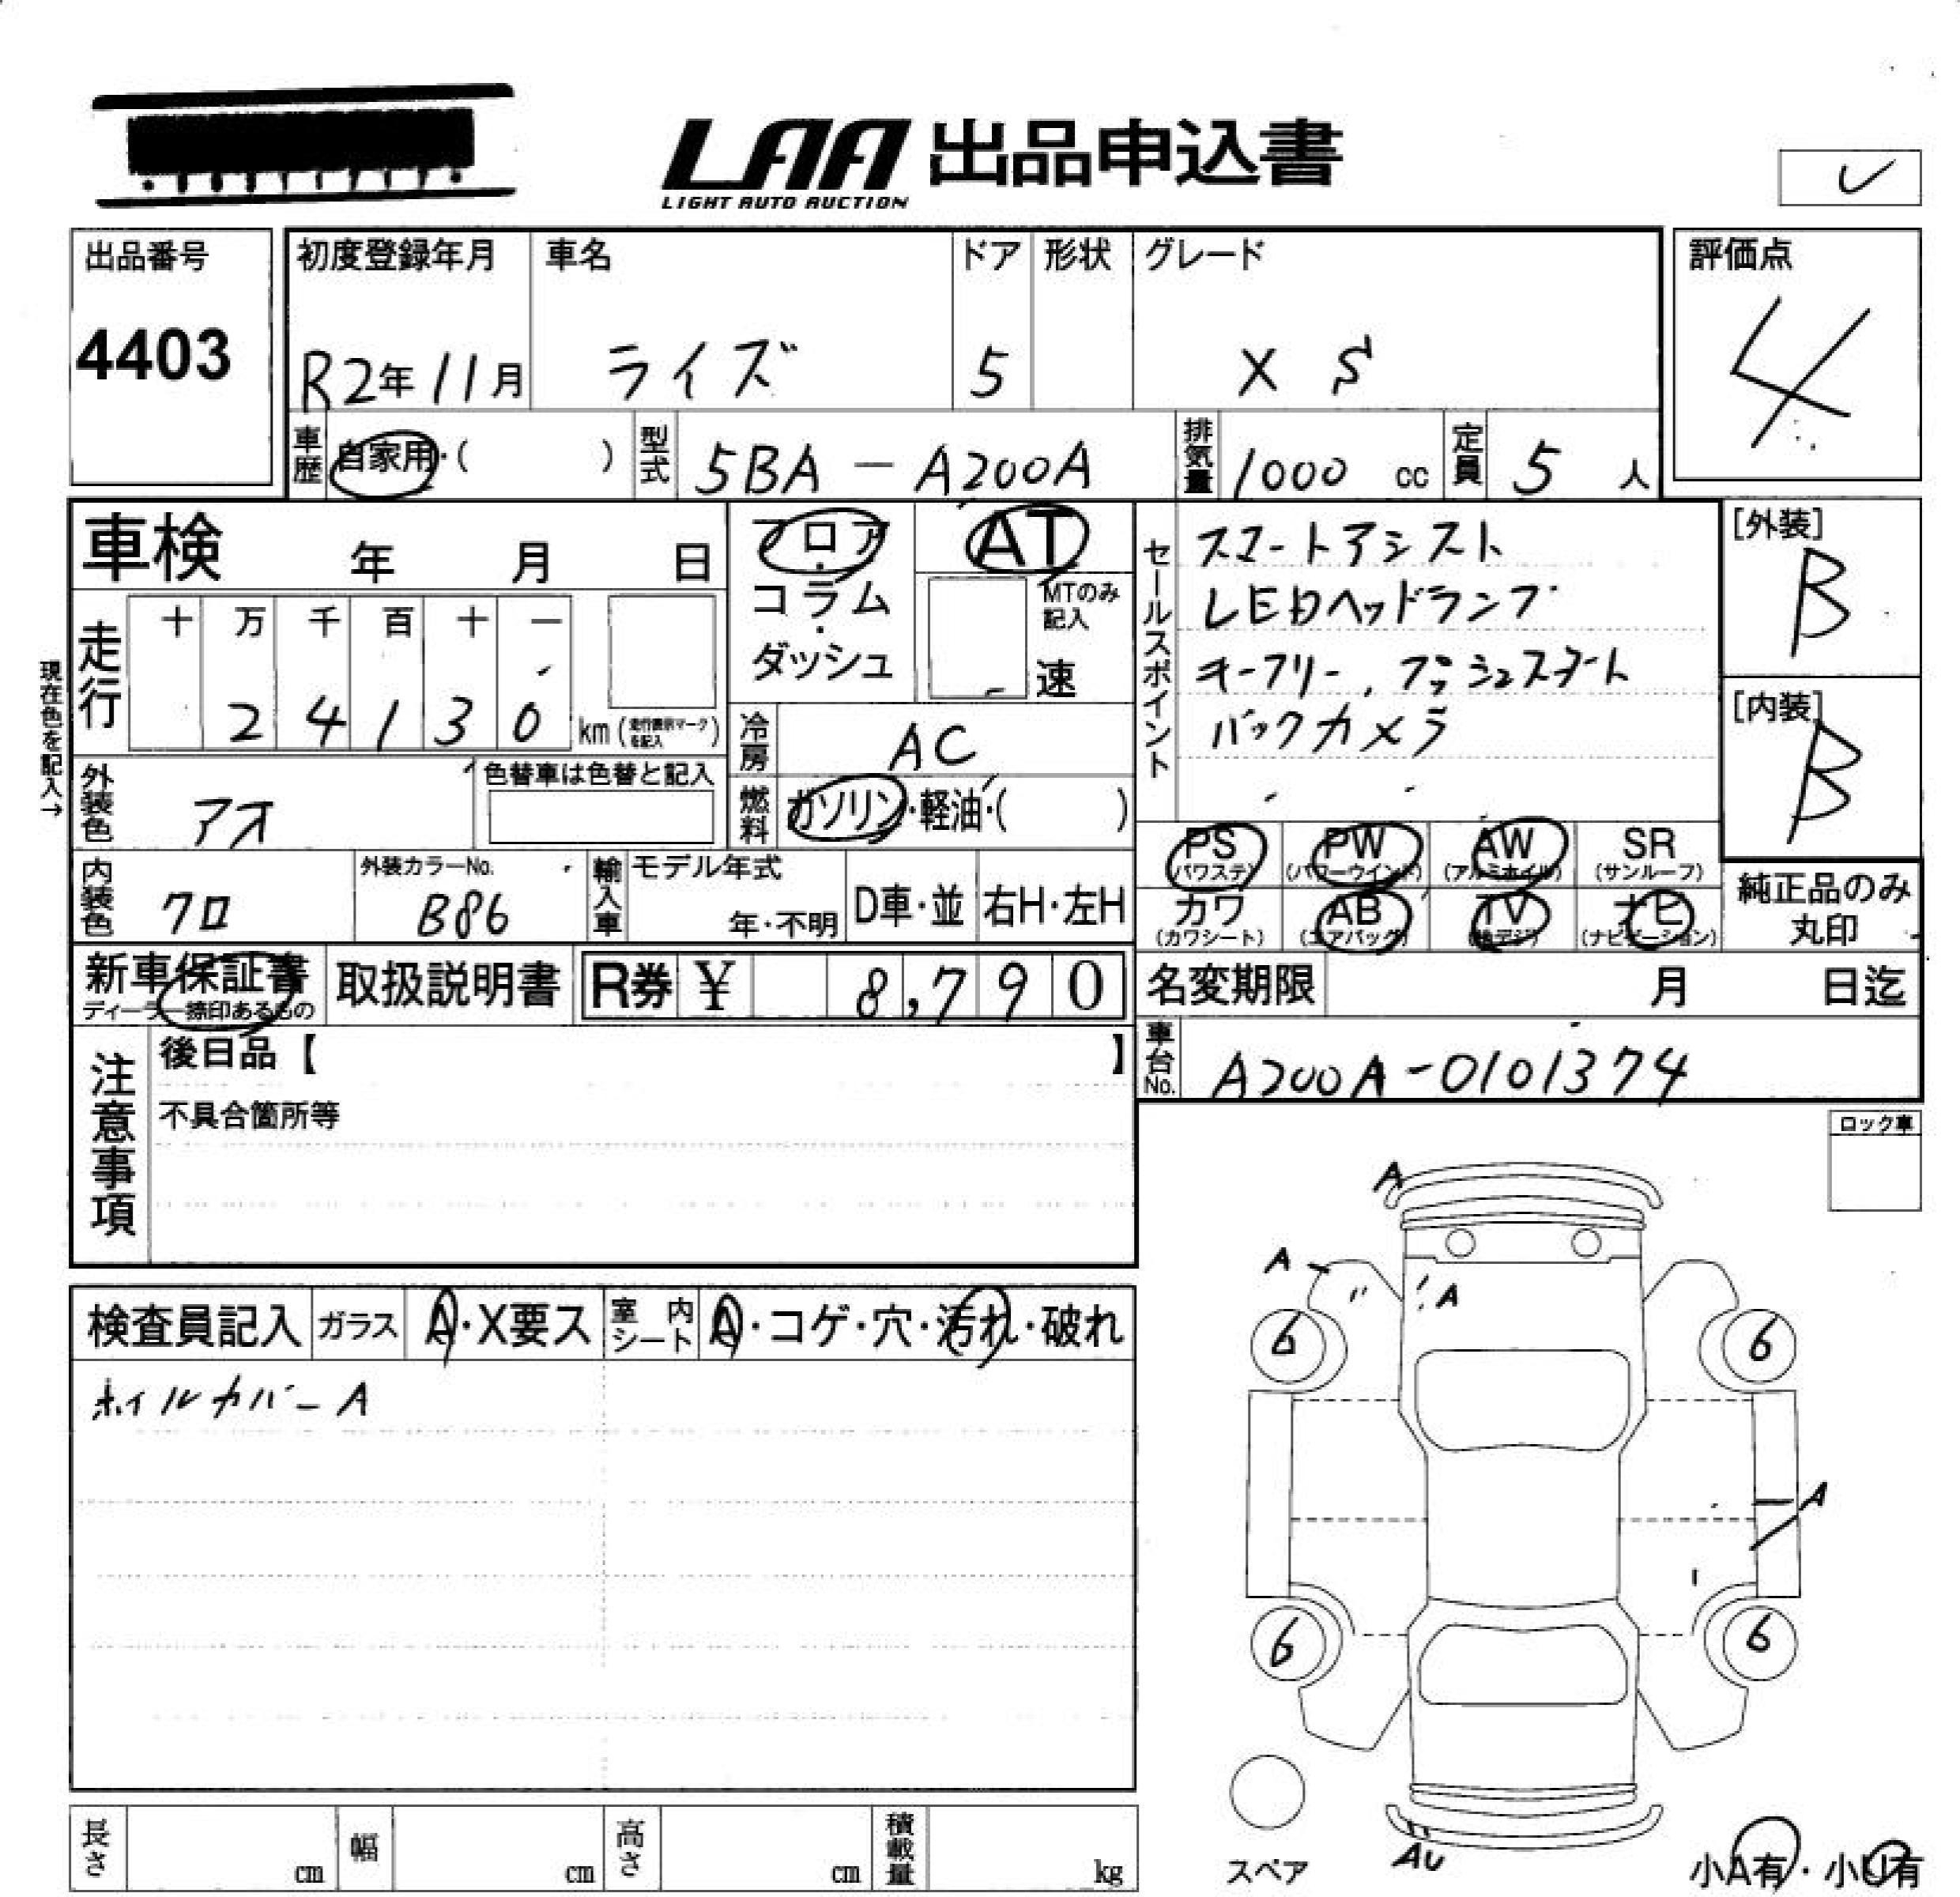 LAA 出品申込書
LIGHT AUTO AUCTION
出品番号
4403
初度登録年月 車名 ドア 形状 グレード
R2年11月 ライズ 5 X S
評価点
4
車歴 自家用・( ) 型式 5BA-A200A 排気量 1000 cc 定員 5 人
車検 年 月 日
フロア・コラム・ダッシュ
AT
MTのみ記入
速
セールスポイント
スマートアシスト
LEDヘッドランプ
キーフリー、プッシュスタート
バックカメラ
[外装]
B
[内装]
B
現在色を記入→
走行 十 万 千 百 十 一
2 4 1 3 0 km (走行表示マークを記入)
冷房 AC
外装色 アオ 色替車は色替と記入
燃料 ガソリン・軽油・( )
内装色 クロ 外装カラーNo. B86
輸入車 モデル年式 年・不明 D車・並 右H・左H
PS (パワステ) PW (パワーウインド) AW (アルミホイル) SR (サンルーフ)
カワ (カワシート) AB (エアバッグ) TV (地デジ) ナビ (ナビゲーション)
純正品のみ丸印
新車保証書 ディーラー捺印あるもの 取扱説明書 R券 ¥ 8,790
名変期限 月 日迄
車台No. A200A-0101374
注意事項
後日品【 】
不具合箇所等
ロック車
検査員記入 ガラス A・X要ス 室内シート A・コゲ・穴・汚れ・破れ
ホイルカバーA
A
A
A
6 6
A
6 6
AU
スペア
小A有・小U有
長さ cm 幅 cm 高さ cm 積載量 kg